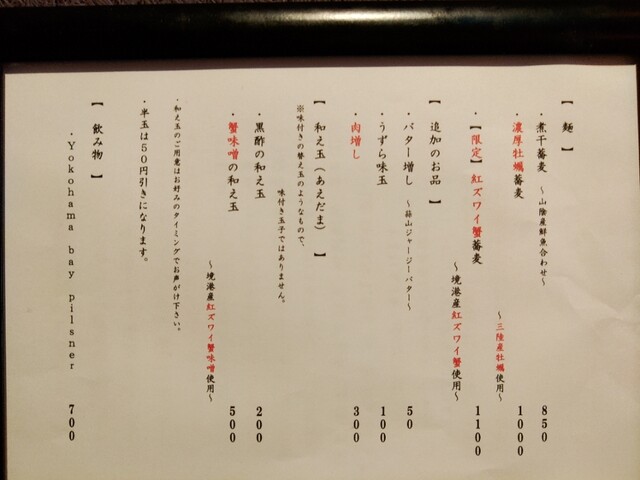 【 麺 】
・煮干蕎麦 ～山陰産鮮魚合わせ～ 850
・濃厚牡蠣蕎麦
～三陸産牡蠣使用～ 1000
・【限定】紅ズワイ蟹蕎麦 1100
～境港産紅ズワイ蟹使用～
【 追加のお品 】
・バター増し ～蒜山ジャージーバター～ 50
・うずら味玉 100
・肉増し 300
【 和え玉（あえだま） 】
※味付きの替え玉のようなもので、
味付き玉子ではありません。
・黒酢の和え玉 200
・蟹味噌の和え玉 500
～境港産紅ズワイ蟹味噌使用～
・和え玉のご用意はお好みのタイミングでお声がけ下さい。
・半玉は50円引きになります。
【 飲み物 】
・Yokohama bay pilsner 700